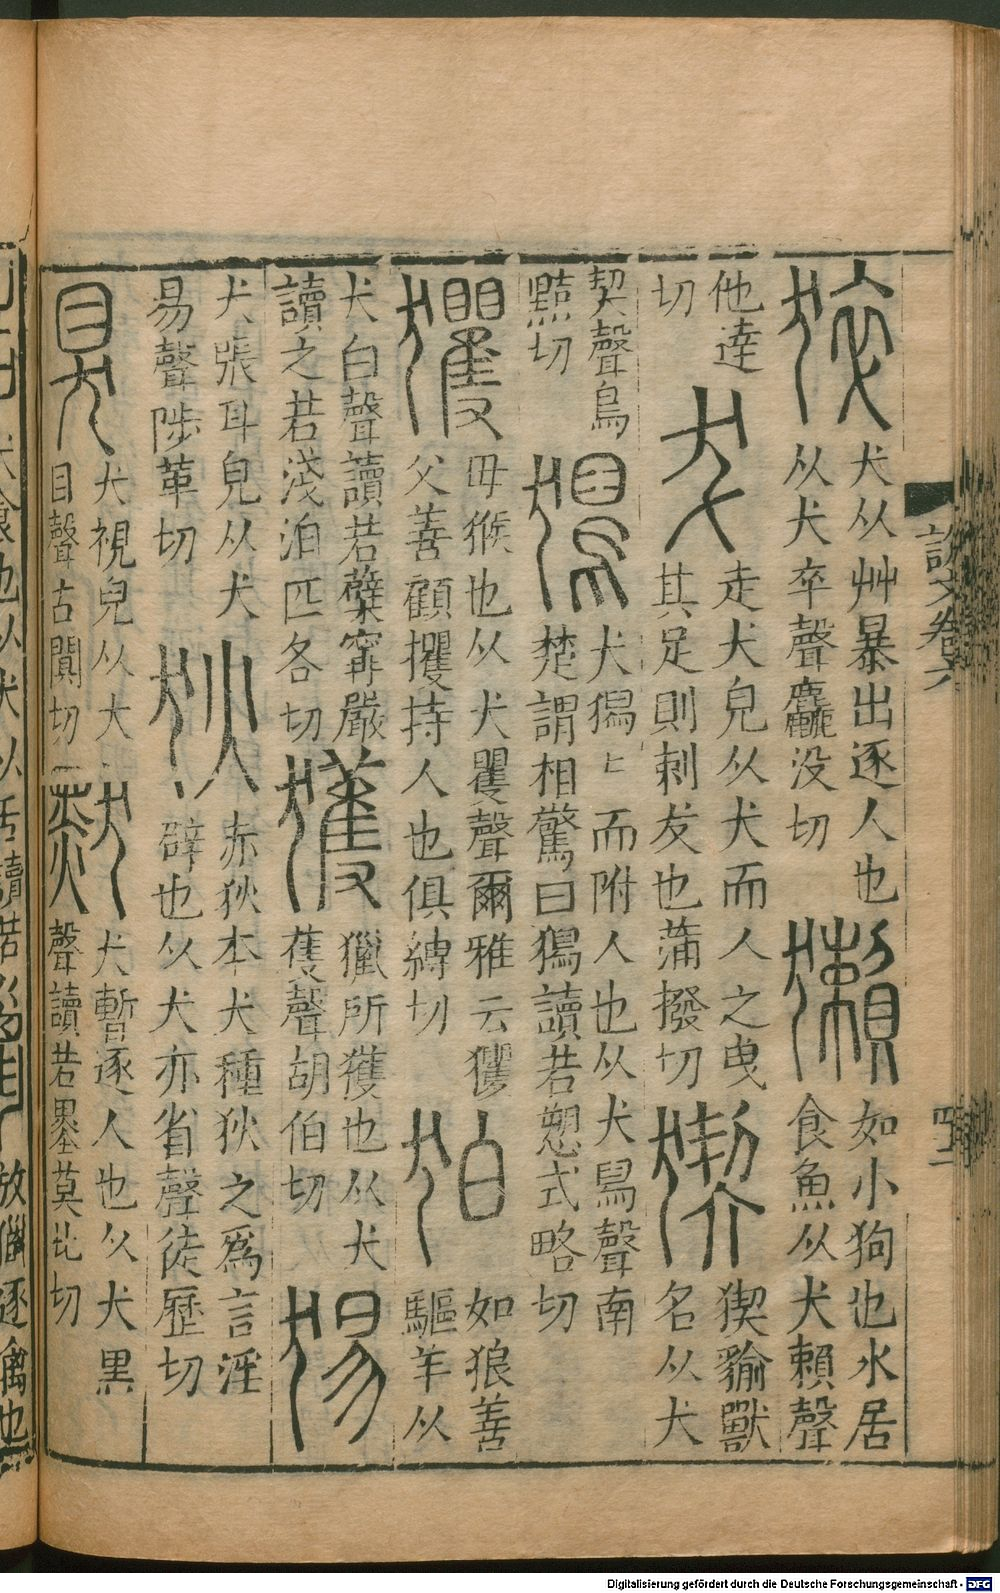 猝
犬从艸暴出逐人也
从犬卒聲麤没切
獺
如小狗也水居
食魚从犬賴聲
他達
切
犮
走犬皃从犬而人之曳
其足則剌犮也蒲撥切
猰
猰貐獸
名从犬
契聲烏
黠切
獡
犬獡〻而附人也从犬舄聲南
楚謂相驚曰獡讀若愬式略切
玃
毋猴也从犬矍聲爾雅云玃
父善顧攫持人也俱縛切
狛
如狼善
驅羊从
犬白聲讀若蘗甯嚴
讀之若淺泊匹各切
獲
獵所獲也从犬
蒦聲胡伯切
𤟍
犬張耳皃从犬
易聲陟革切
狄
赤狄本犬種狄之爲言淫
辟也从犬亦省聲徒歷切
狊
犬視皃从犬
目聲古闃切
默
犬暫逐人也从犬黑
聲讀若墨莫北切
說文卷六
犬食也从犬从舌讀若
放獵逐禽也
Digitalisierung gefördert durch die Deutsche Forschungsgemeinschaft - DFG